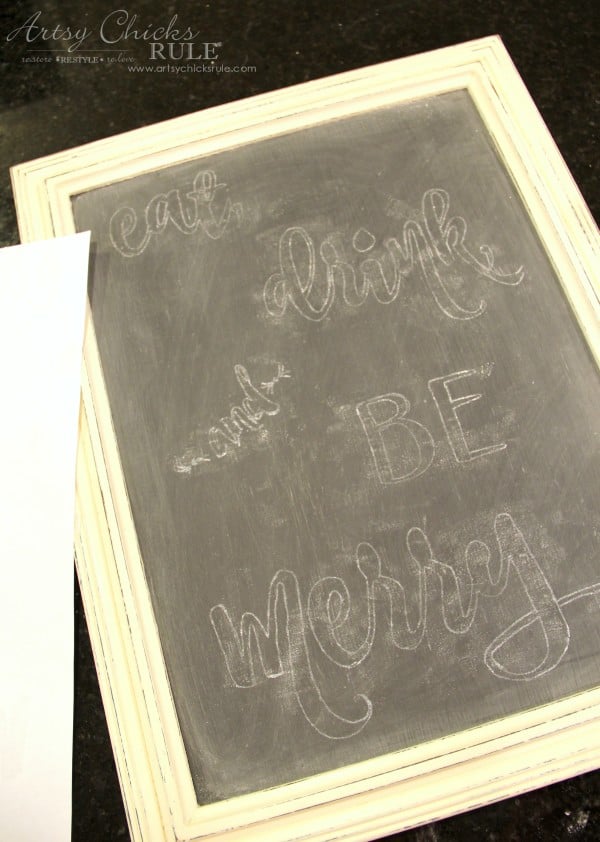 Artsy Chicks
RULE
restore RESTYLE re.love
www.artsychicksrule.com
eat,
drink,
and
BE
merry